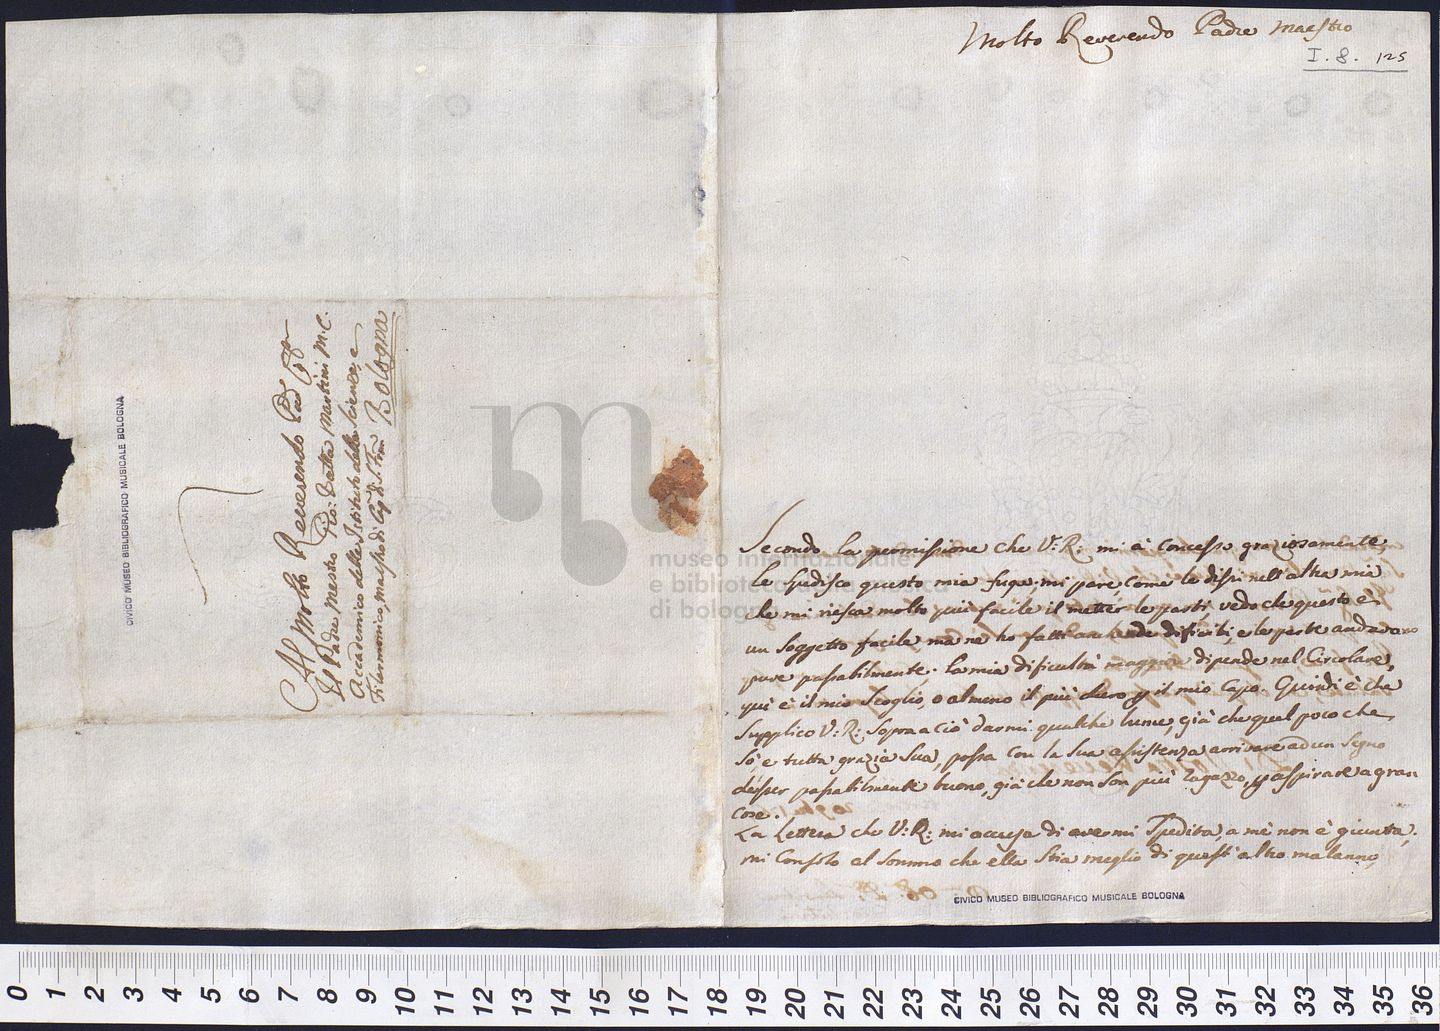 Molto Reverendo Padre Maestro
I. 8. 125
Secondo la permissione che V: R: mi à concesso graziosamente
le spedisco questo mia fuga, mi pare, come le dissi nell'altra mia
che mi riesca molto più facile il metter le parti, vedo che questo è
un soggetto facile ma ne ho fatti anche de dificili, e le parte andavano
pure passabilmente; la mia dificultà maggior dipende nel Circolare,
qui è il mio Scoglio, o almeno il più duro p il mio Capo. Quindi è che
supplico V: R: sopra a Ciò darmi qualche lume, già che quel poco che
sò, e tutta grazia Sua, possa con la Sua assistenza arrivare ad un segno
d'esser passabilmente buono, già che non son più ragazzo, p aspirare a gran
cose.
La Lettera che V: R: mi accusa di avermi Spedita, a mè non è giunta,
mi Consolo al sommo che ella Stia meglio di quest'altro malanno,
CIVICO MUSEO BIBLIOGRAFICO MUSICALE BOLOGNA
Al Molto Reverendo
Il Padre Mestro Gio: Batta Martini M. C.
Accademico delle Istituto delle Scienze, e
Filarmonico, Mastro di
Bologna
CIVICO MUSEO BIBLIOGRAFICO MUSICALE BOLOGNA
museo internazionale
e biblioteca della musica
di bologna
0 1 2 3 4 5 6 7 8 9 10 11 12 13 14 15 16 17 18 19 20 21 22 23 24 25 26 27 28 29 30 31 32 33 34 35 36